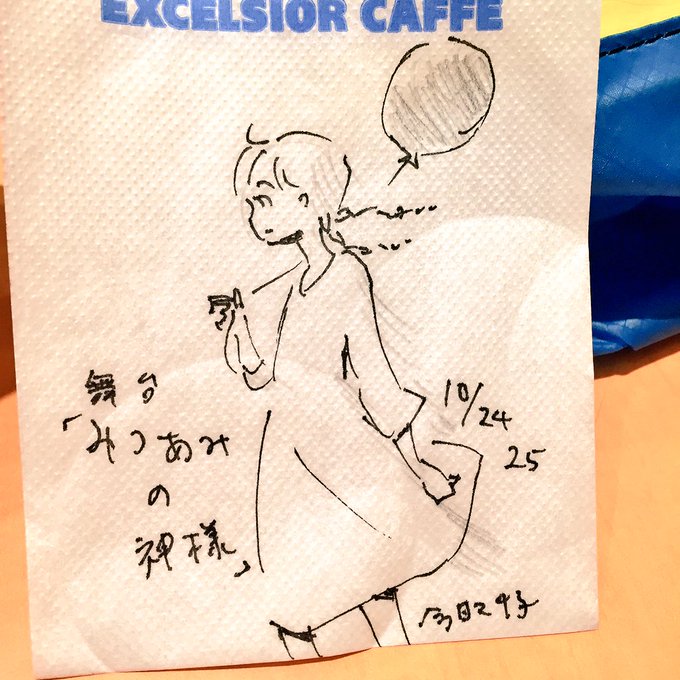 EXCELSIOR CAFFÉ
舞台
「みつあみ
の
神様」
10/24
25
今日マチ子